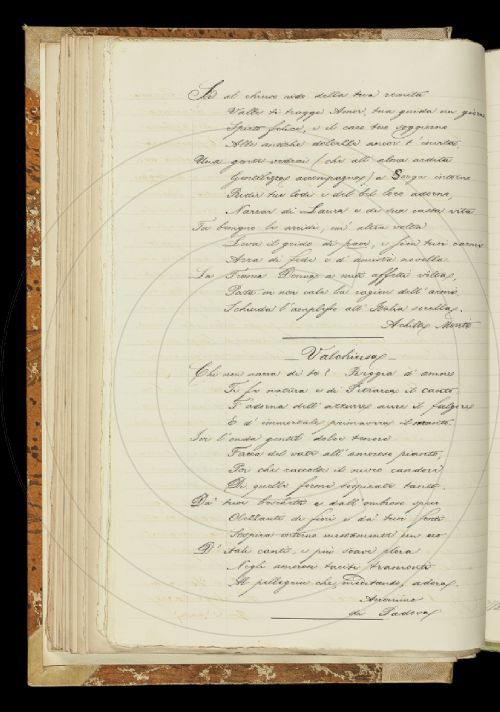 Se al chiuso nido della tua romita
Valle ti tragge Amor, tua guida un giorno
Spirto felice, e il caro tuo soggiorno
Alle antiche dolcezze ancor t'invita,
Una gente vedrai (che all' alma ardita
Gentilezza accompagna) a Sorga intorno
Ridir tue lodi e del bel loco adorno,
Narrar di Laura e di sua casta vita
Tu benigno le arridi, un' altra volta
Leva il grido di pace, e sien tuoi carmi
Arra di fede e d' amistà novella.
La Donna a miti affetti volta,
Pate in non cale la ragion dell' armi,
Schiuda l'amplesso all' Italia sorella.
Achille Monti
— Valchiusa —
Chi non s' ama di te! Reggia d' amore
Ti fe natura e di Petrarca il canto
T' adorna dell' azzurro aure il fulgore
E d' immortale primavera il manto.
Per l'onda gentil dolce tenore
Facea del vate all' amoroso pianto,
Poi che raccolse il niveo candore
Di quelle forme sospirate tanto.
Da' tuoi boschetti e dall' ombroso speco
Olezzante di fiori e da' tuoi fonti
Sospira intorno mestamente un eco
D' Itali canti, e più soave plora
Negli amorosi taciti tramonti
Al pellegrin che, meditando, adora.
Anonimo
da Padova